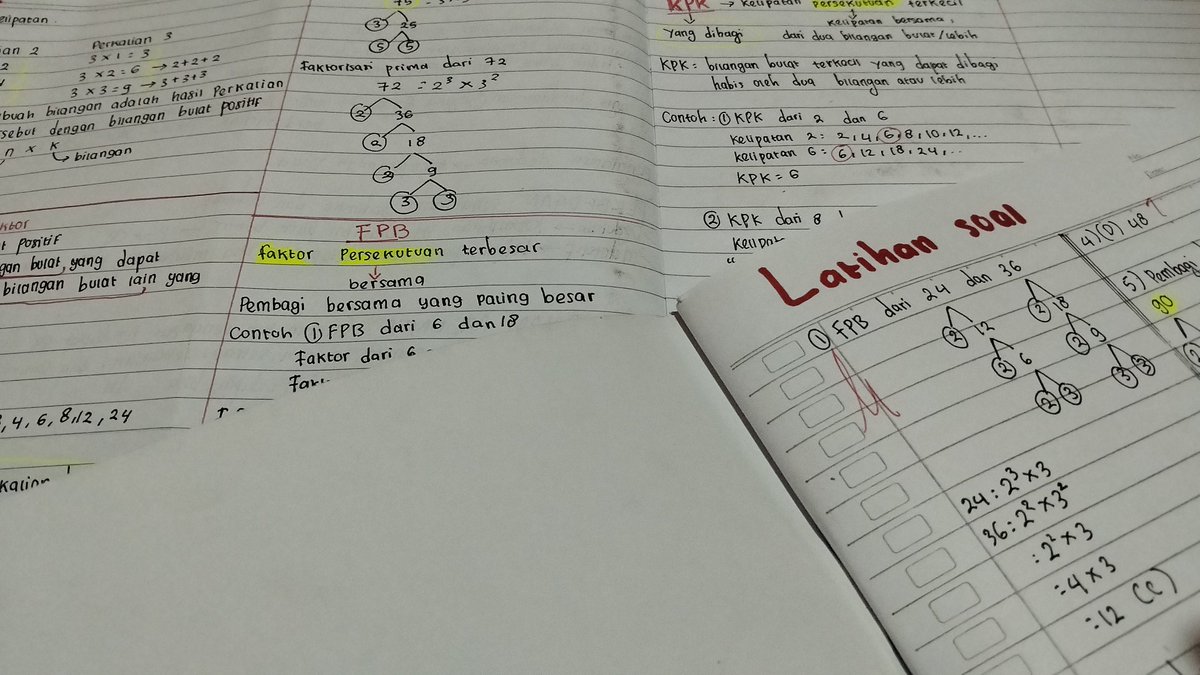 elipatan
Perkalian 3
3 x 1 = 3
3 x 2 = 6 → 2+2+2
3 x 3 = 9 → 3+3+3
buah bilangan adalah hasil Perkalian
sebut dengan bilangan bulat positif
n x k
bilangan
t positif
gan bulat, yang dapat
bilangan bulat lain yang
, 4, 6, 8, 12, 24
75
3 25
5 5
faktorisasi prima dari 72
72 = 2³ x 3²
2 36
2 18
2 9
3 3
FPB
faktor Persekutuan terbesar
bersama
Pembagi bersama yang paling besar
Contoh ① FPB dari 6 dan 18
faktor dari 6
KPK → kelipatan persekutuan terkecil
kelipatan bersama,
yang dibagi dari dua bilangan bulat/lebih
KPK = bilangan bulat terkecil yang dapat dibagi
habis oleh dua bilangan atau lebih
Contoh : ① KPK dari 2 dan 6
kelipatan 2 = 2, 4, 6, 8, 10, 12, ...
kelipatan 6 = 6, 12, 18, 24, ..
KPK = 6
② KPK dari 8
Latihan soal
① FPB dari 24 dan 36
2 12 2 18
2 6 2 9
2 3 3 3
24 = 2³ x 3
36 = 2² x 3²
= 2² x 3
= 4 x 3
= 12 (c)
4) (D) 48
5) Pembagi
90